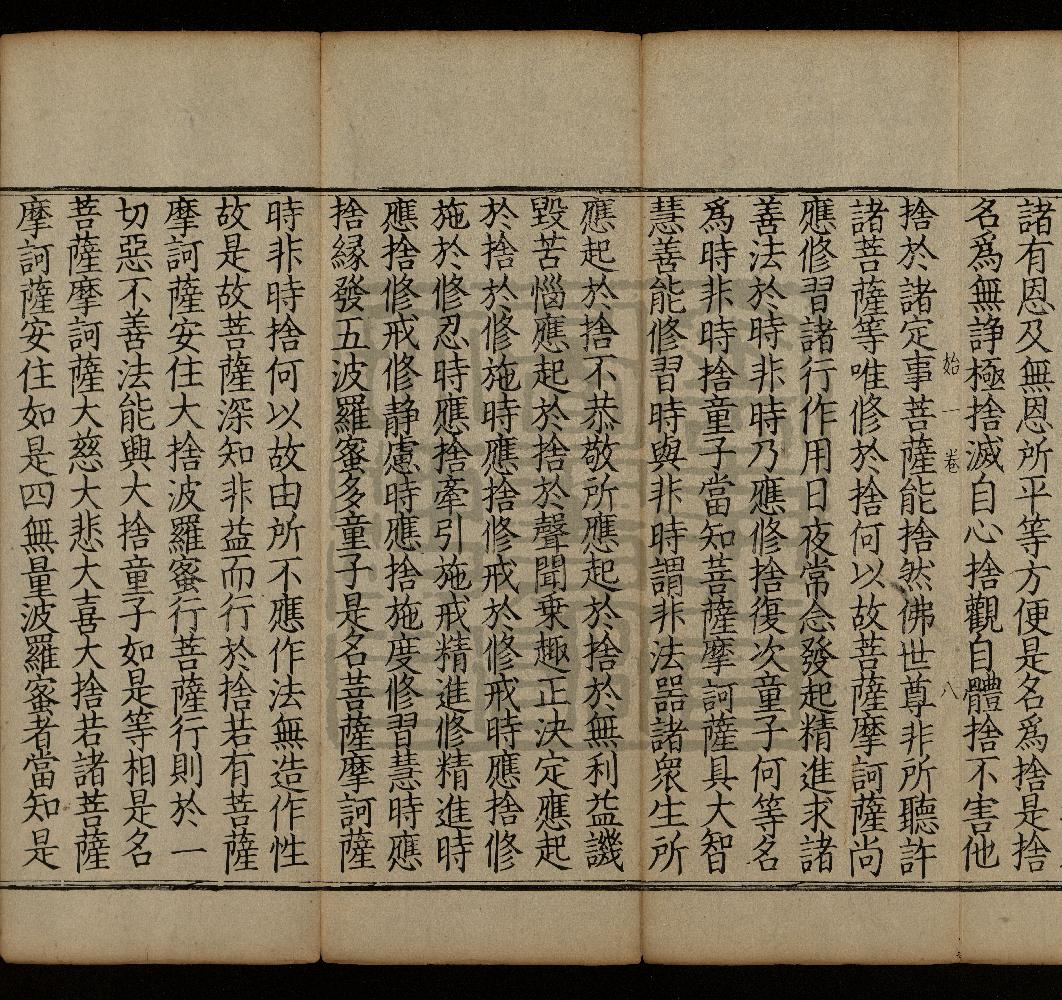 諸有恩及無恩所平等方便是名爲捨是捨
名爲無諍極捨滅自心捨觀自體捨不害他
始一卷 八
捨於諸定事菩薩能捨然佛世尊非所聽許
諸菩薩等唯修於捨何以故菩薩摩訶薩尚
應修習諸行作用日夜常念發起精進求諸
善法於時非時乃應修捨復次童子何等名
爲時非時捨童子當知菩薩摩訶薩具大智
慧善能修習時與非時謂非法器諸衆生所
應起於捨不恭敬所應起於捨於無利益譏
毀苦惱應起於捨於聲聞乗趣正決定應起
於捨於修施時應捨修戒於修戒時應捨修
施於修忍時應捨牽引施戒精進修精進時
應捨修戒修静慮時應捨施度修習慧時應
捨縁發五波羅蜜多童子是名菩薩摩訶薩
時非時捨何以故由所不應作法無造作性
故是故菩薩深知非益而行於捨若有菩薩
摩訶薩安住大捨波羅蜜行菩薩行則於一
切惡不善法能興大捨童子如是等相是名
菩薩摩訶薩大慈大悲大喜大捨若諸菩薩
摩訶薩安住如是四無量波羅蜜者當知是